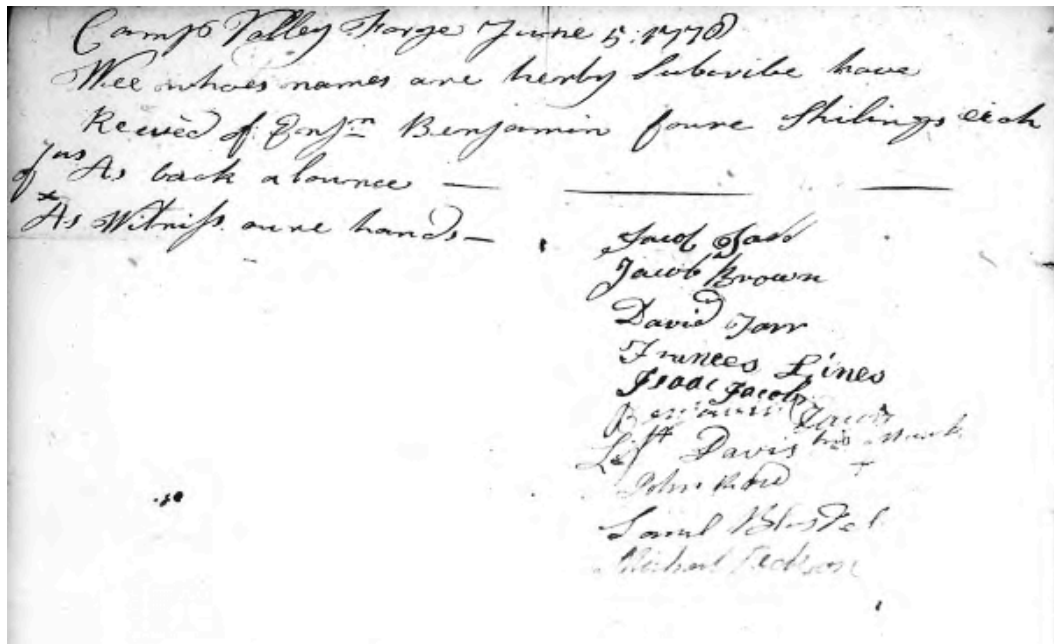 Camp Valley Forge June 5: 1778
Wee whoes names are herby Subcribe have
Receved of Ensjn Benjamin foure Shilings eich
As back alounce —
As Witniss oure hands —
Jacob
Jacob Brown
David Tarr
Frances Lines
Isaac Jacobs
Benjamin
Davis his mark
John
Samul
Michael Jeckson